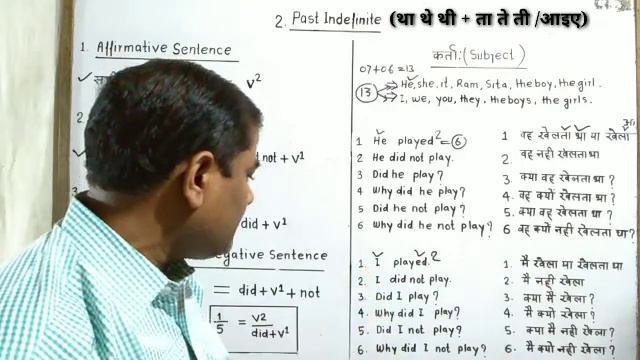 2. Past Indefinite (था थे थी + ता ते ती /आइए)
1. Affirmative Sentence
V²
2.
not + V¹
did + V¹
Negative Sentence
= did + V¹ + not
1/5 = V²/did+V¹
कर्ता:(Subject)
07+06=13
13 He, she, it, Ram, Sita, the boy, the girl.
I, we, you, they, the boys, the girls.
1 He played² = 6
2 He did not play.
3 Did he play?
4 Why did he play?
5 Did he not play?
6 Why did he not play?
1 वह खेलता था या खेला
2. वह नही खेलता था
3. क्या वह खेलता था?
4. वह क्यों खेलता था?
5. क्या वह खेलता था?
6 वह क्यो नही खेलता था?
1. I played.²
2. I did not play.
3 Did I play?
4. Why did I play?
5. Did I not play?
6. Why did I not play?
1. मै खेला या खेलता था
2. मै नही खेला
3. क्या मै खेला?
4. मै क्यो खेला?
5. क्या मै नही खेला?
6. मै क्यो नही खेला?